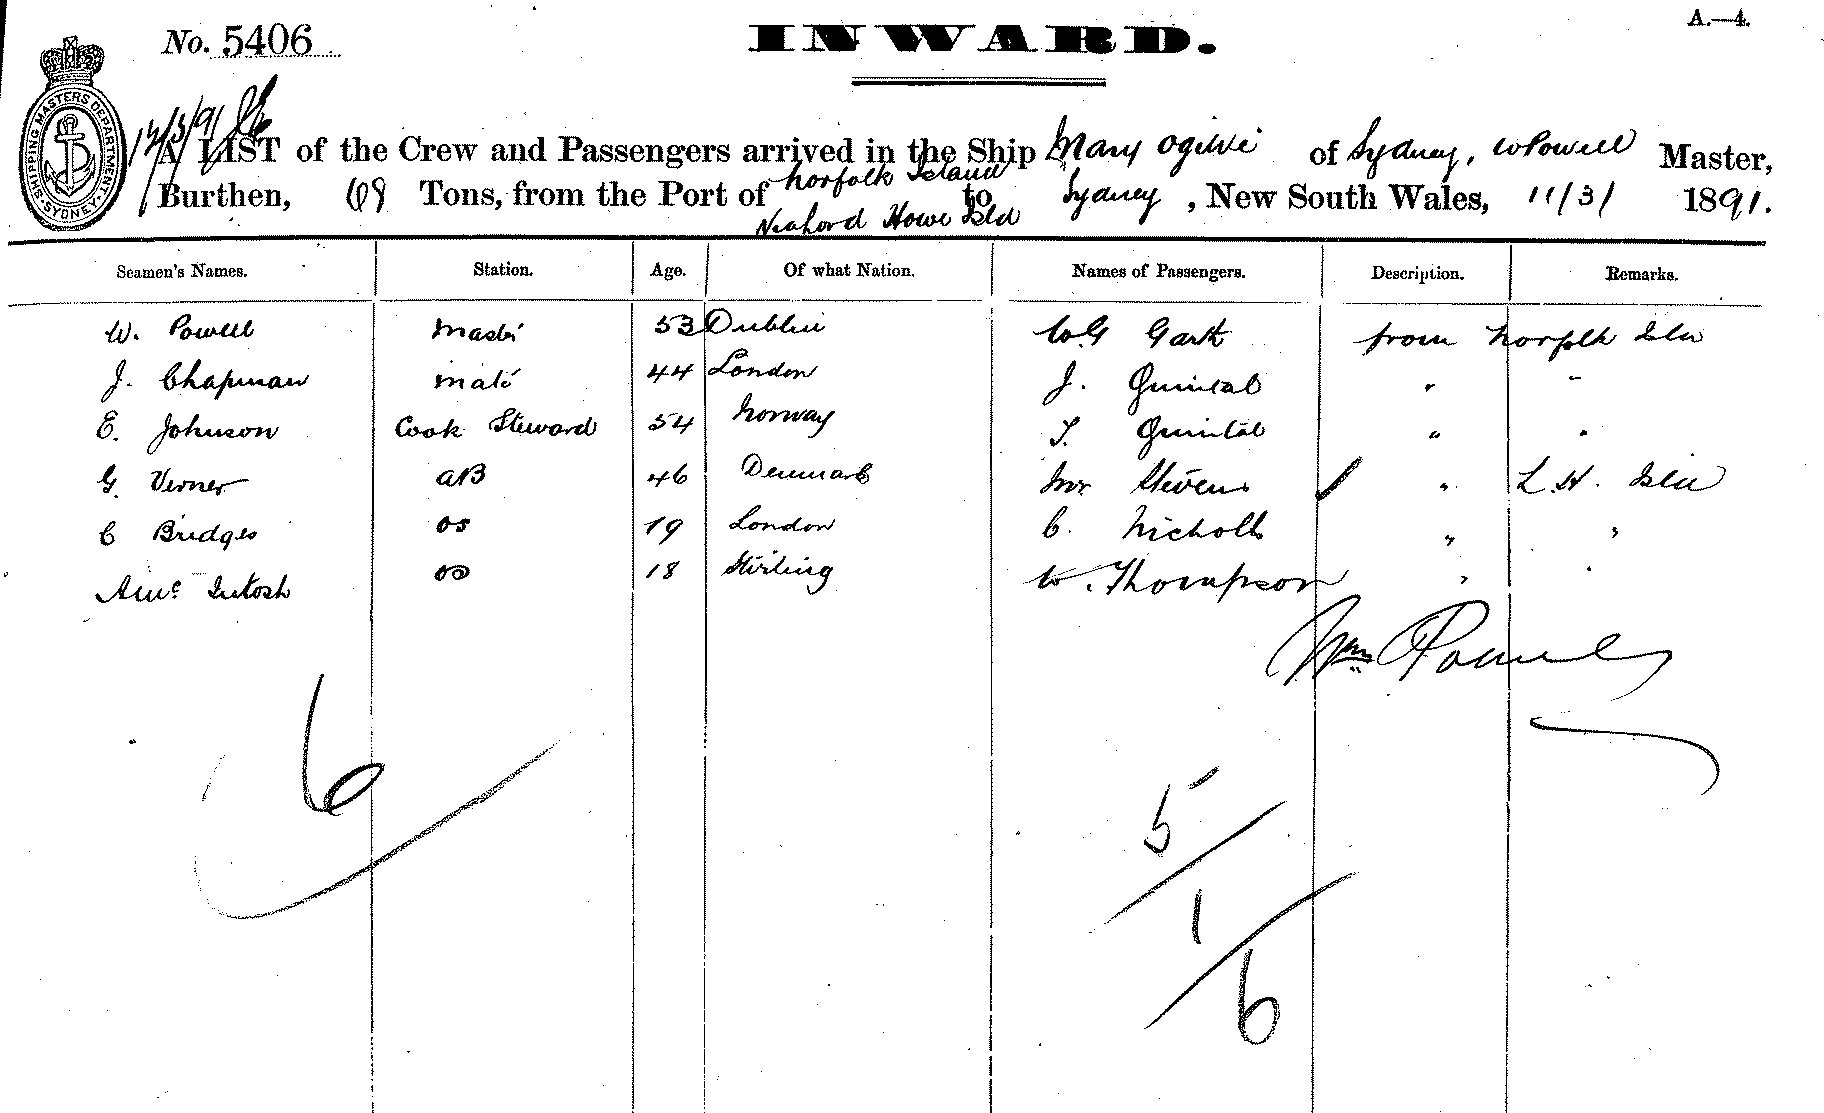 A.—4.
No. 5406
INWARD.
SHIPPING MASTERS DEPARTMENT SYDNEY
12/3/91
A LIST of the Crew and Passengers arrived in the Ship Mary Ogilvie of Sydney, W Powell Master,
Burthen, 69 Tons, from the Port of Norfolk Island to Sydney, New South Wales, 11/3/ 1891.
Via Lord Howe Isld
Seamen's Names. Station. Age. Of what Nation. Names of Passengers. Description. Remarks.
W. Powell Master 53 Dublin W.G from Norfolk Isld
J. Chapman mate 44 London J. Quintal " "
E. Johnson Cook Steward 54 Norway T. Quintal " "
G. Verner AB 46 Denmark Mr Stevens " L.H. Isld
C Bridges OS 19 London C. Nicholls " "
A Mc Intosh OS 18 Stirling W. Thompson " "
Wm Powell
6
5
1
6